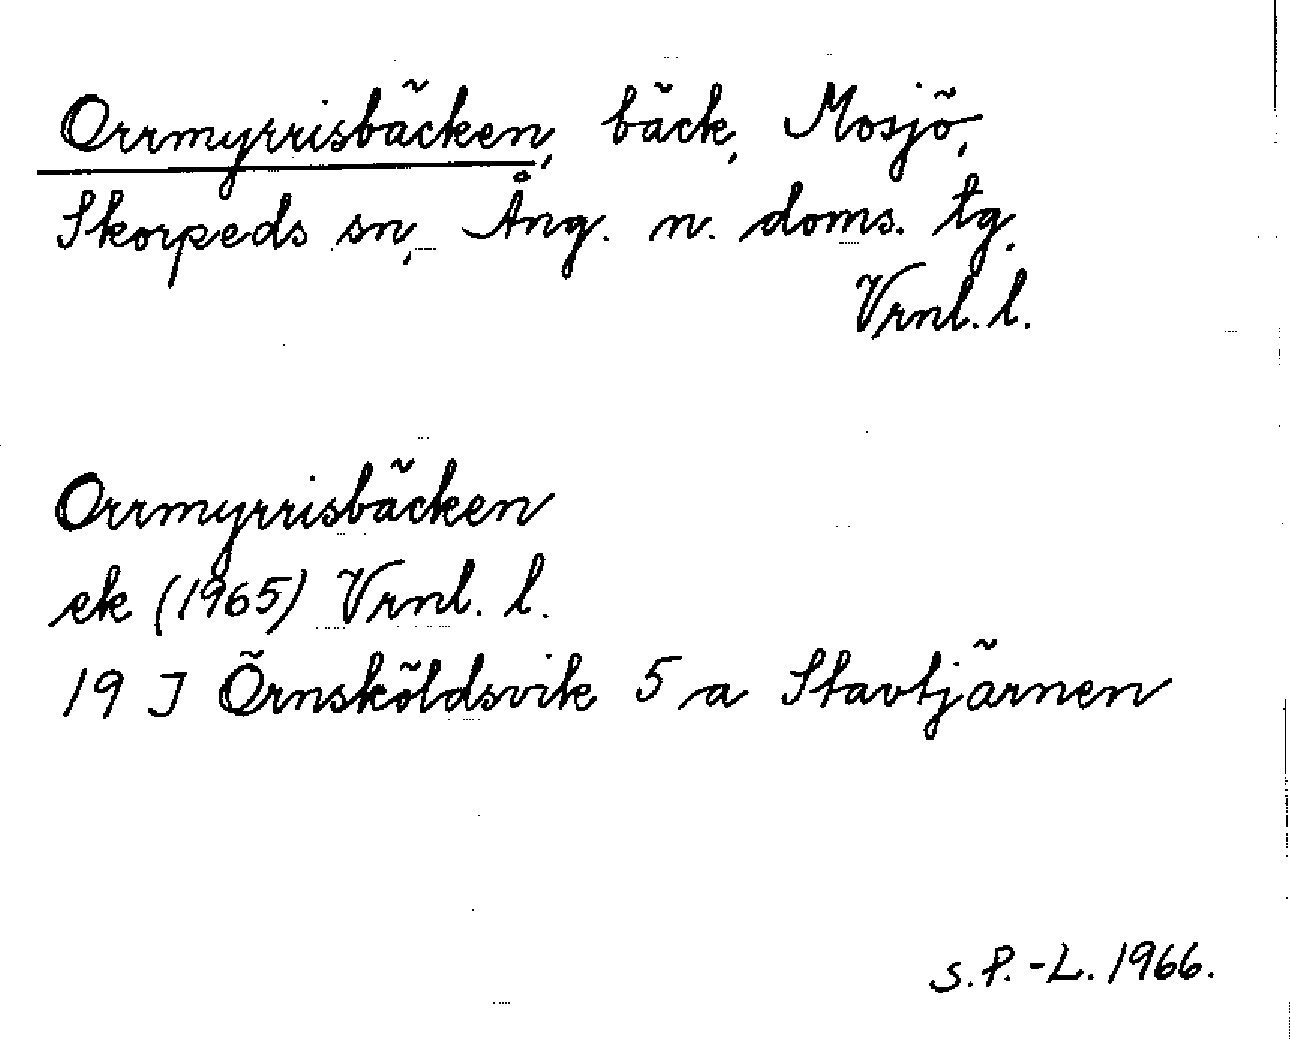 Orrmyrrisbäcken, bäck, Mosjö,
Skorpeds sn, Ång. n. doms. tg.
Vrnl. l.
Orrmyrrisbäcken
ek (1965) Vrnl. l.
19 J Örnsköldsvik 5 a Stavtjärnen
S. P. -L. 1966.